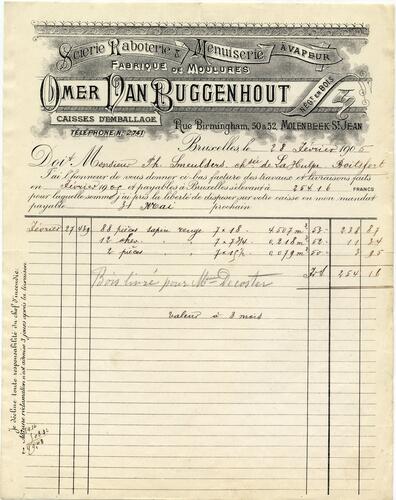 Scierie Raboterie & Menuiserie À VAPEUR
FABRIQUE DE MOULURES
OMER VAN BUGGENHOUT
NÉGT EN BOIS
CAISSES D'EMBALLAGE
TÉLÉPHONE N° 2741
Rue Birmingham, 50 & 52, MOLENBEEK-ST-JEAN
Bruxelles le 28 Février 1905
Doit Monsieur Ph. Smeulders, chée de La Hulpe Boitsfort
J'ai l'honneur de vous donner ci-bas facture des travaux et livraisons faits
en février 1905 et payables à Bruxelles s'élevant à 254.16 FRANCS
pour laquelle somme j'ai pris la liberté de disposer sur votre caisse en mon mandat
payable 31 Mai prochain
Février 27. 439 88 pièces sapin rouge 7 x 18 4.507 m³ 53 - 238 87
12 ches 7 x 7¾ 0.218 m³ 52 - 11 34
2 pièces 7 x 15½ 0,079 m³ 50 - 3 95
Frs 254 16
Bois livré pour Mr Decoster
Valeur à 3 mois
Je décline toute responsabilité du chef d'incendie.
Aucune réclamation n'est admise 3 jours après la livraison.